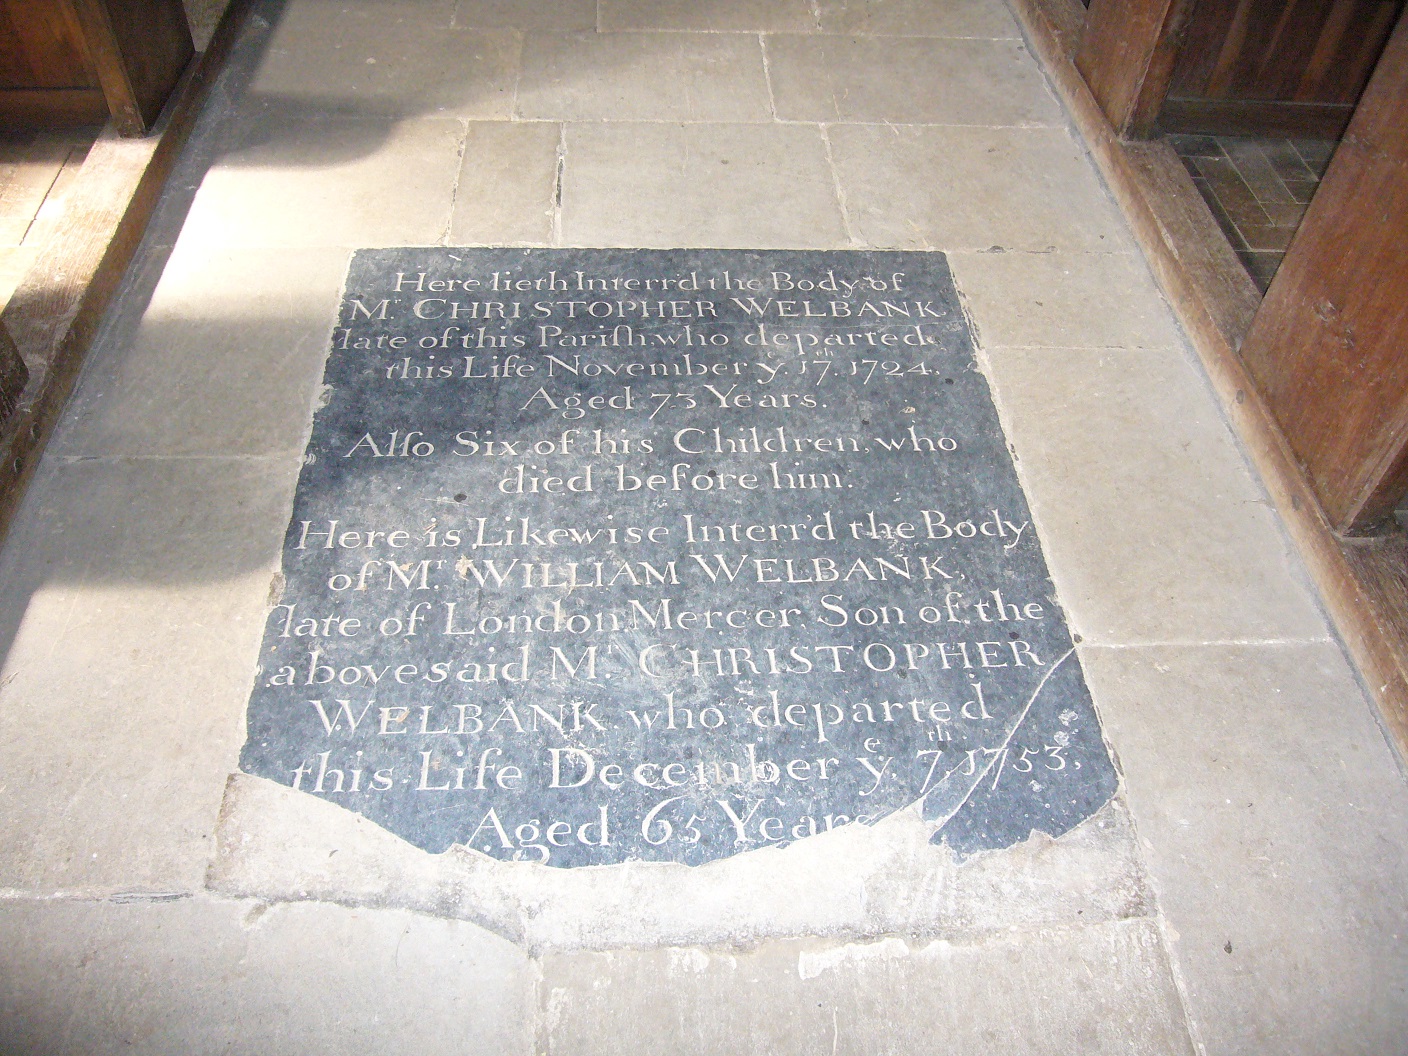 Here lieth Interr'd the Body of
Mr. CHRISTOPHER WELBANK
late of this Pariſh. who departed
this Life November ye. 17th. 1724.
Aged 73 Years.
Alſo Six of his Children, who
died before him.
Here is Likewise Interr'd the Body
of Mr. WILLIAM WELBANK,
late of London. Mercer. Son of the
abovesaid Mr. CHRISTOPHER
WELBANK who departed
this Life December ye. 7th. 1753.
Aged 65 Years